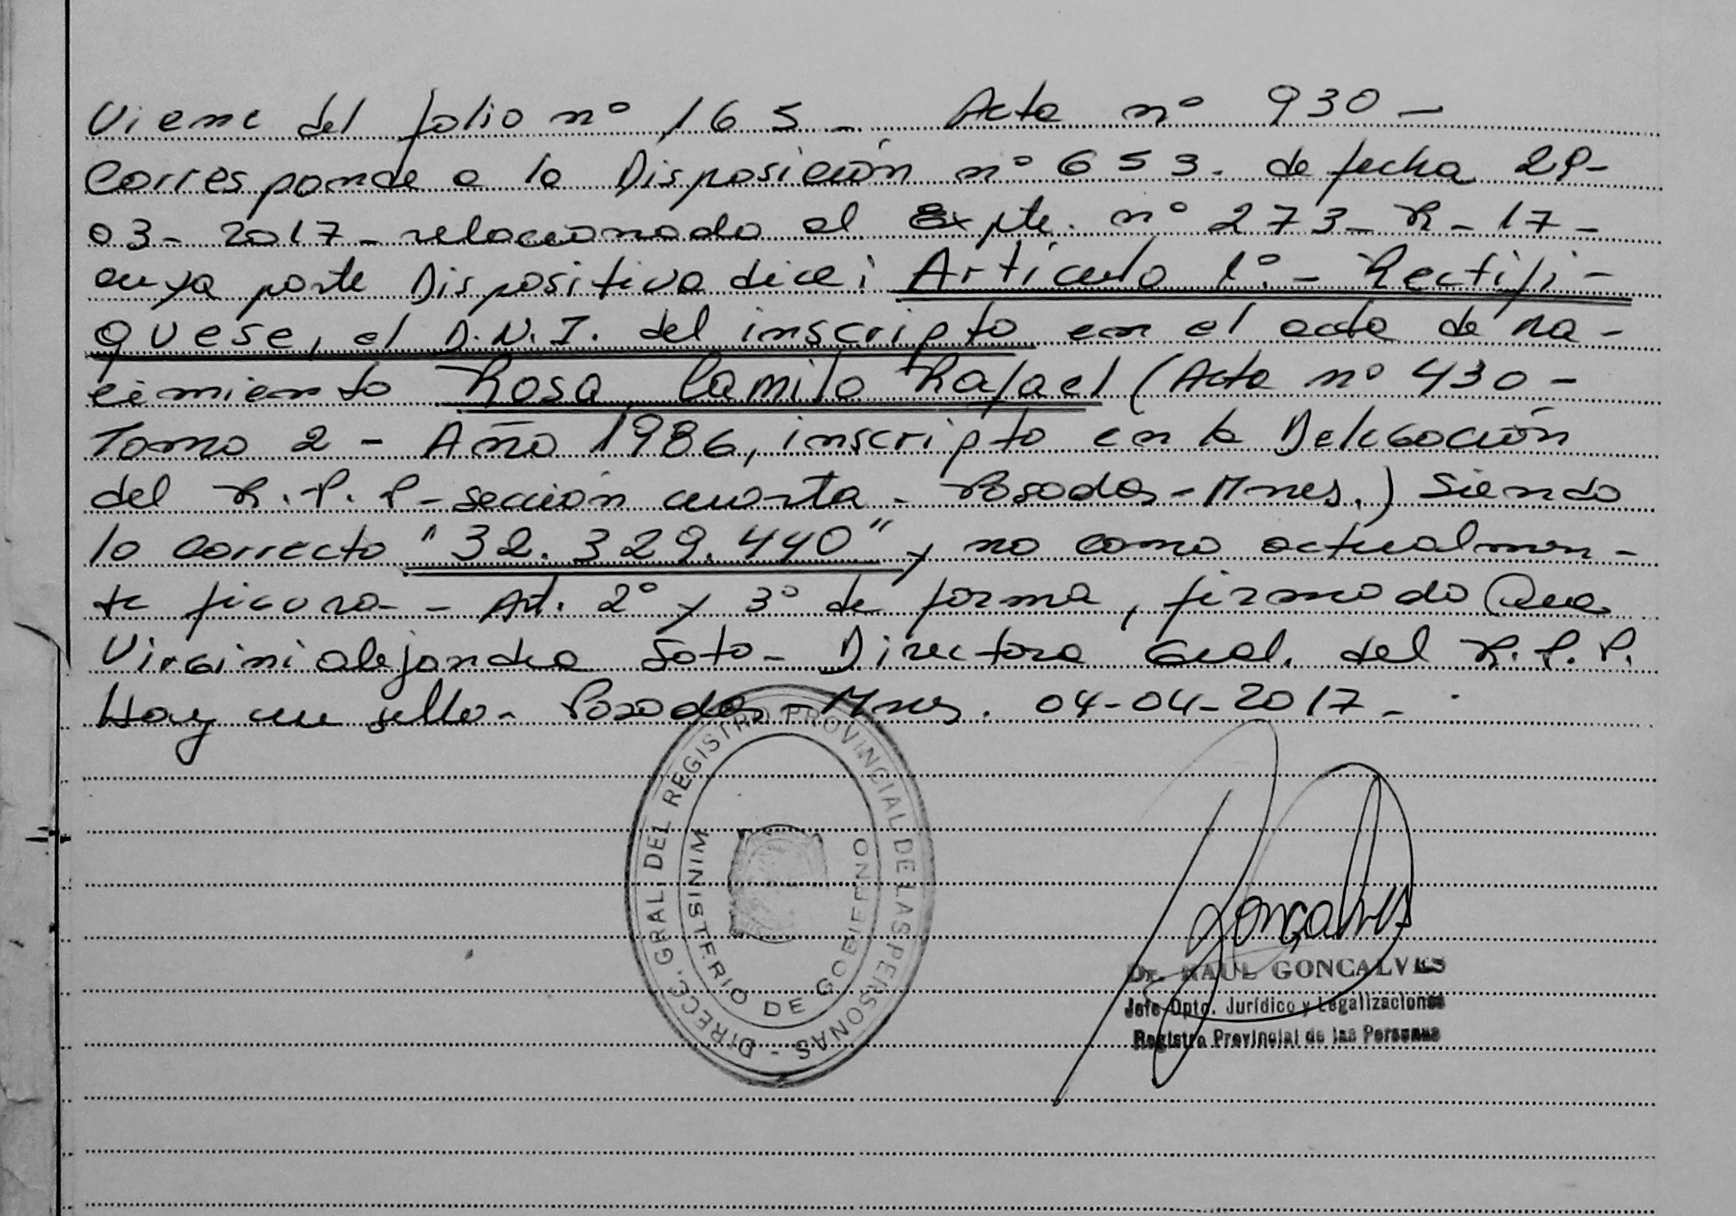 Viene del folio nº 165 - Acta nº 930 -
Corresponde a la Disposición nº 653. de fecha 28-
03-2017 - relacionado al Expte. nº 273-R-17-
cuya parte Dispositiva dice: Artículo 1º.- Rectifí-
quese, el D.N.I. del inscripto en el acta de na-
cimiento Rosa, Camilo Rafael (Acta nº 430-
Tomo 2 - Año 1986, inscripto en la Delegación
del R.P.P - sección cuarta - Posadas - Mnes.) Siendo
lo correcto "32.329.440" y no como actualmen-
te figura - Art. 2º y 3º de forma, firmado
Virgini alejandra Soto - Directora Gral. del R.P.P.
Hay un sello - Posadas - Mnes. 04-04-2017 -
DIRECC. GRAL DEL REGISTRO PROVINCIAL DE LAS PERSONAS -
MINISTERIO DE GOBIERNO
Goncalves
Dr. RAUL GONCALVES
Jefe Dpto. Jurídico y Legalizaciones
Registro Provincial de las Personas